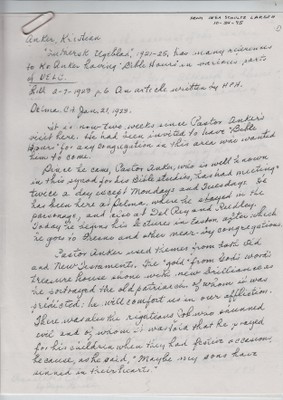 FROM VEGA SCHULTZ LARSEN
10-30-95
Anker, Kirsten
"Luthersk Ugeblad," 1921-26, has many references
to Ko Anker having "Bible Hours" in various parts
of UELC.
2-7-1923 p.6 An article written by H.P.H.
Selma CA Jan. 21, 1923.
It is now two weeks since Pastor Anker's
visit here. He had been invited to have "Bible
Hours" for any congregation in this area who wanted
him to come.
Since he came, Pastor Anker, who is well known
in this synod for his Bible studies, has had meetings
twice a day except Mondays and Tuesdays. He
has been here at Selma, where he stayed in the
parsonage, and also at Del Rey and Reedley.
Today he begins his lectures in Easton after which
he goes to Fresno and other near-by congregations.
Pastor Anker used themes from both Old
and New Testaments. The "gold" from God's Word's
treasure house shone with new brilliance as
he portrayed the old patriarch of whom it was
predicted: he will comfort us in our affliction.
There was also the righteous Job who shunned
evil and of whom it was told that he prayed
for his children when they had festive occasions,
because, as he said, "Maybe my sons have
sinned in their hearts."